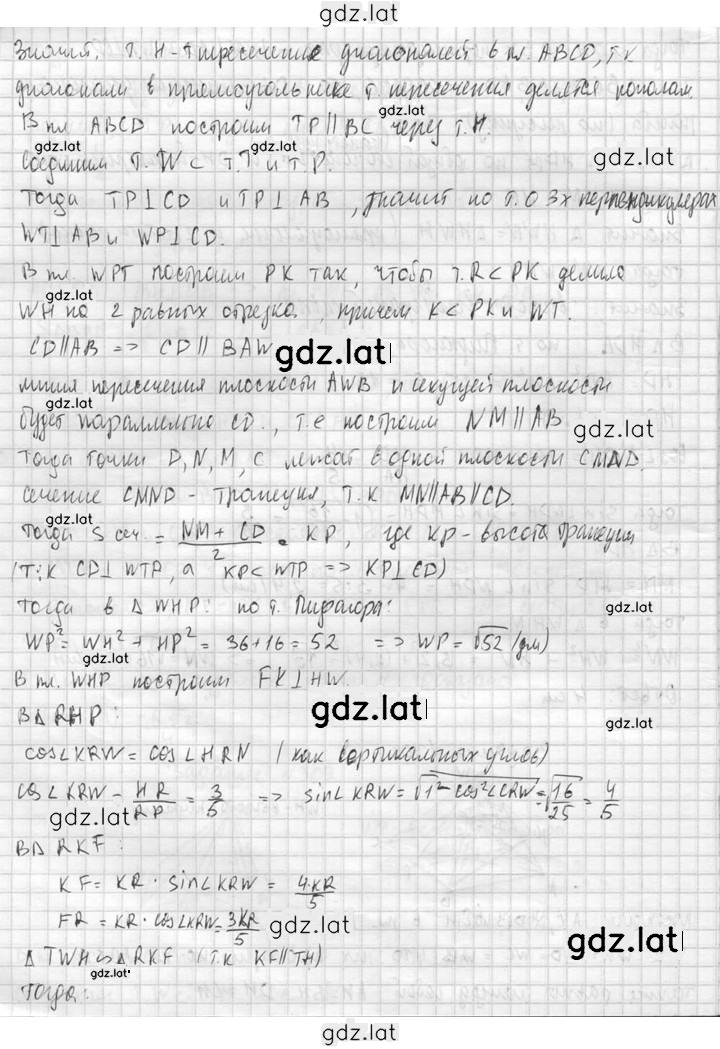 gdz.lat
Значит, т. H - т пересечение диагоналей в пл. ABCD, т.к
диагонали в прямоугольнике т. пересечения делятся пополам.
gdz.lat
В пл ABCD построим TP||BC через т. H.
gdz.lat
Соединим т. W с т. T и т. P.
Тогда TP⊥CD и TP⊥AB, значит по т. о 3х перпендикулярах
WT⊥AB и WP⊥CD.
gdz.lat
В пл. WPT построим PK так, чтобы т. R⊂PK делила
gdz.lat
WH на 2 равных отрезка, причем K⊂PK и WT.
CD||AB => CD||BAW
gdz.lat
линия пересечения плоскости AWB и секущей плоскости
gdz.lat
будет параллельно CD., т.е построим NM||AB
gdz.lat
Тогда точки D, N, M, C лежат в одной плоскости CMND.
Сечение CMND - трапеция, т.к MN||AB||CD.
gdz.lat
Тогда S сеч. = NM + CD / 2 · KP, где KP - высота трапеции
(т.к CD⊥WTP, а KP⊂WTP => KP⊥CD)
gdz.lat
Тогда в △ WHP: по т. Пифагора:
WP² = WH² + HP² = 36+16 = 52 => WP = √52 (дм)
gdz.lat
В пл. WHP построим FK⊥HW.
gdz.lat
В△ RHP:
gdz.lat
cos∠KRW = cos∠HRN (как вертикальных углов)
cos∠KRW - HR/RP = 3/5 => sin∠KRW = √1²-cos²∠CRW = √16/25 = 4/5
gdz.lat
В△ RKF:
KF = KR · sin∠KRW = 4·KR/5
FR = KR · cos∠KRW = 3KR/5
gdz.lat
gdz.lat
△ TWH ∽ △ RKF (т.к KF||TH)
gdz.lat
Тогда:
gdz.lat